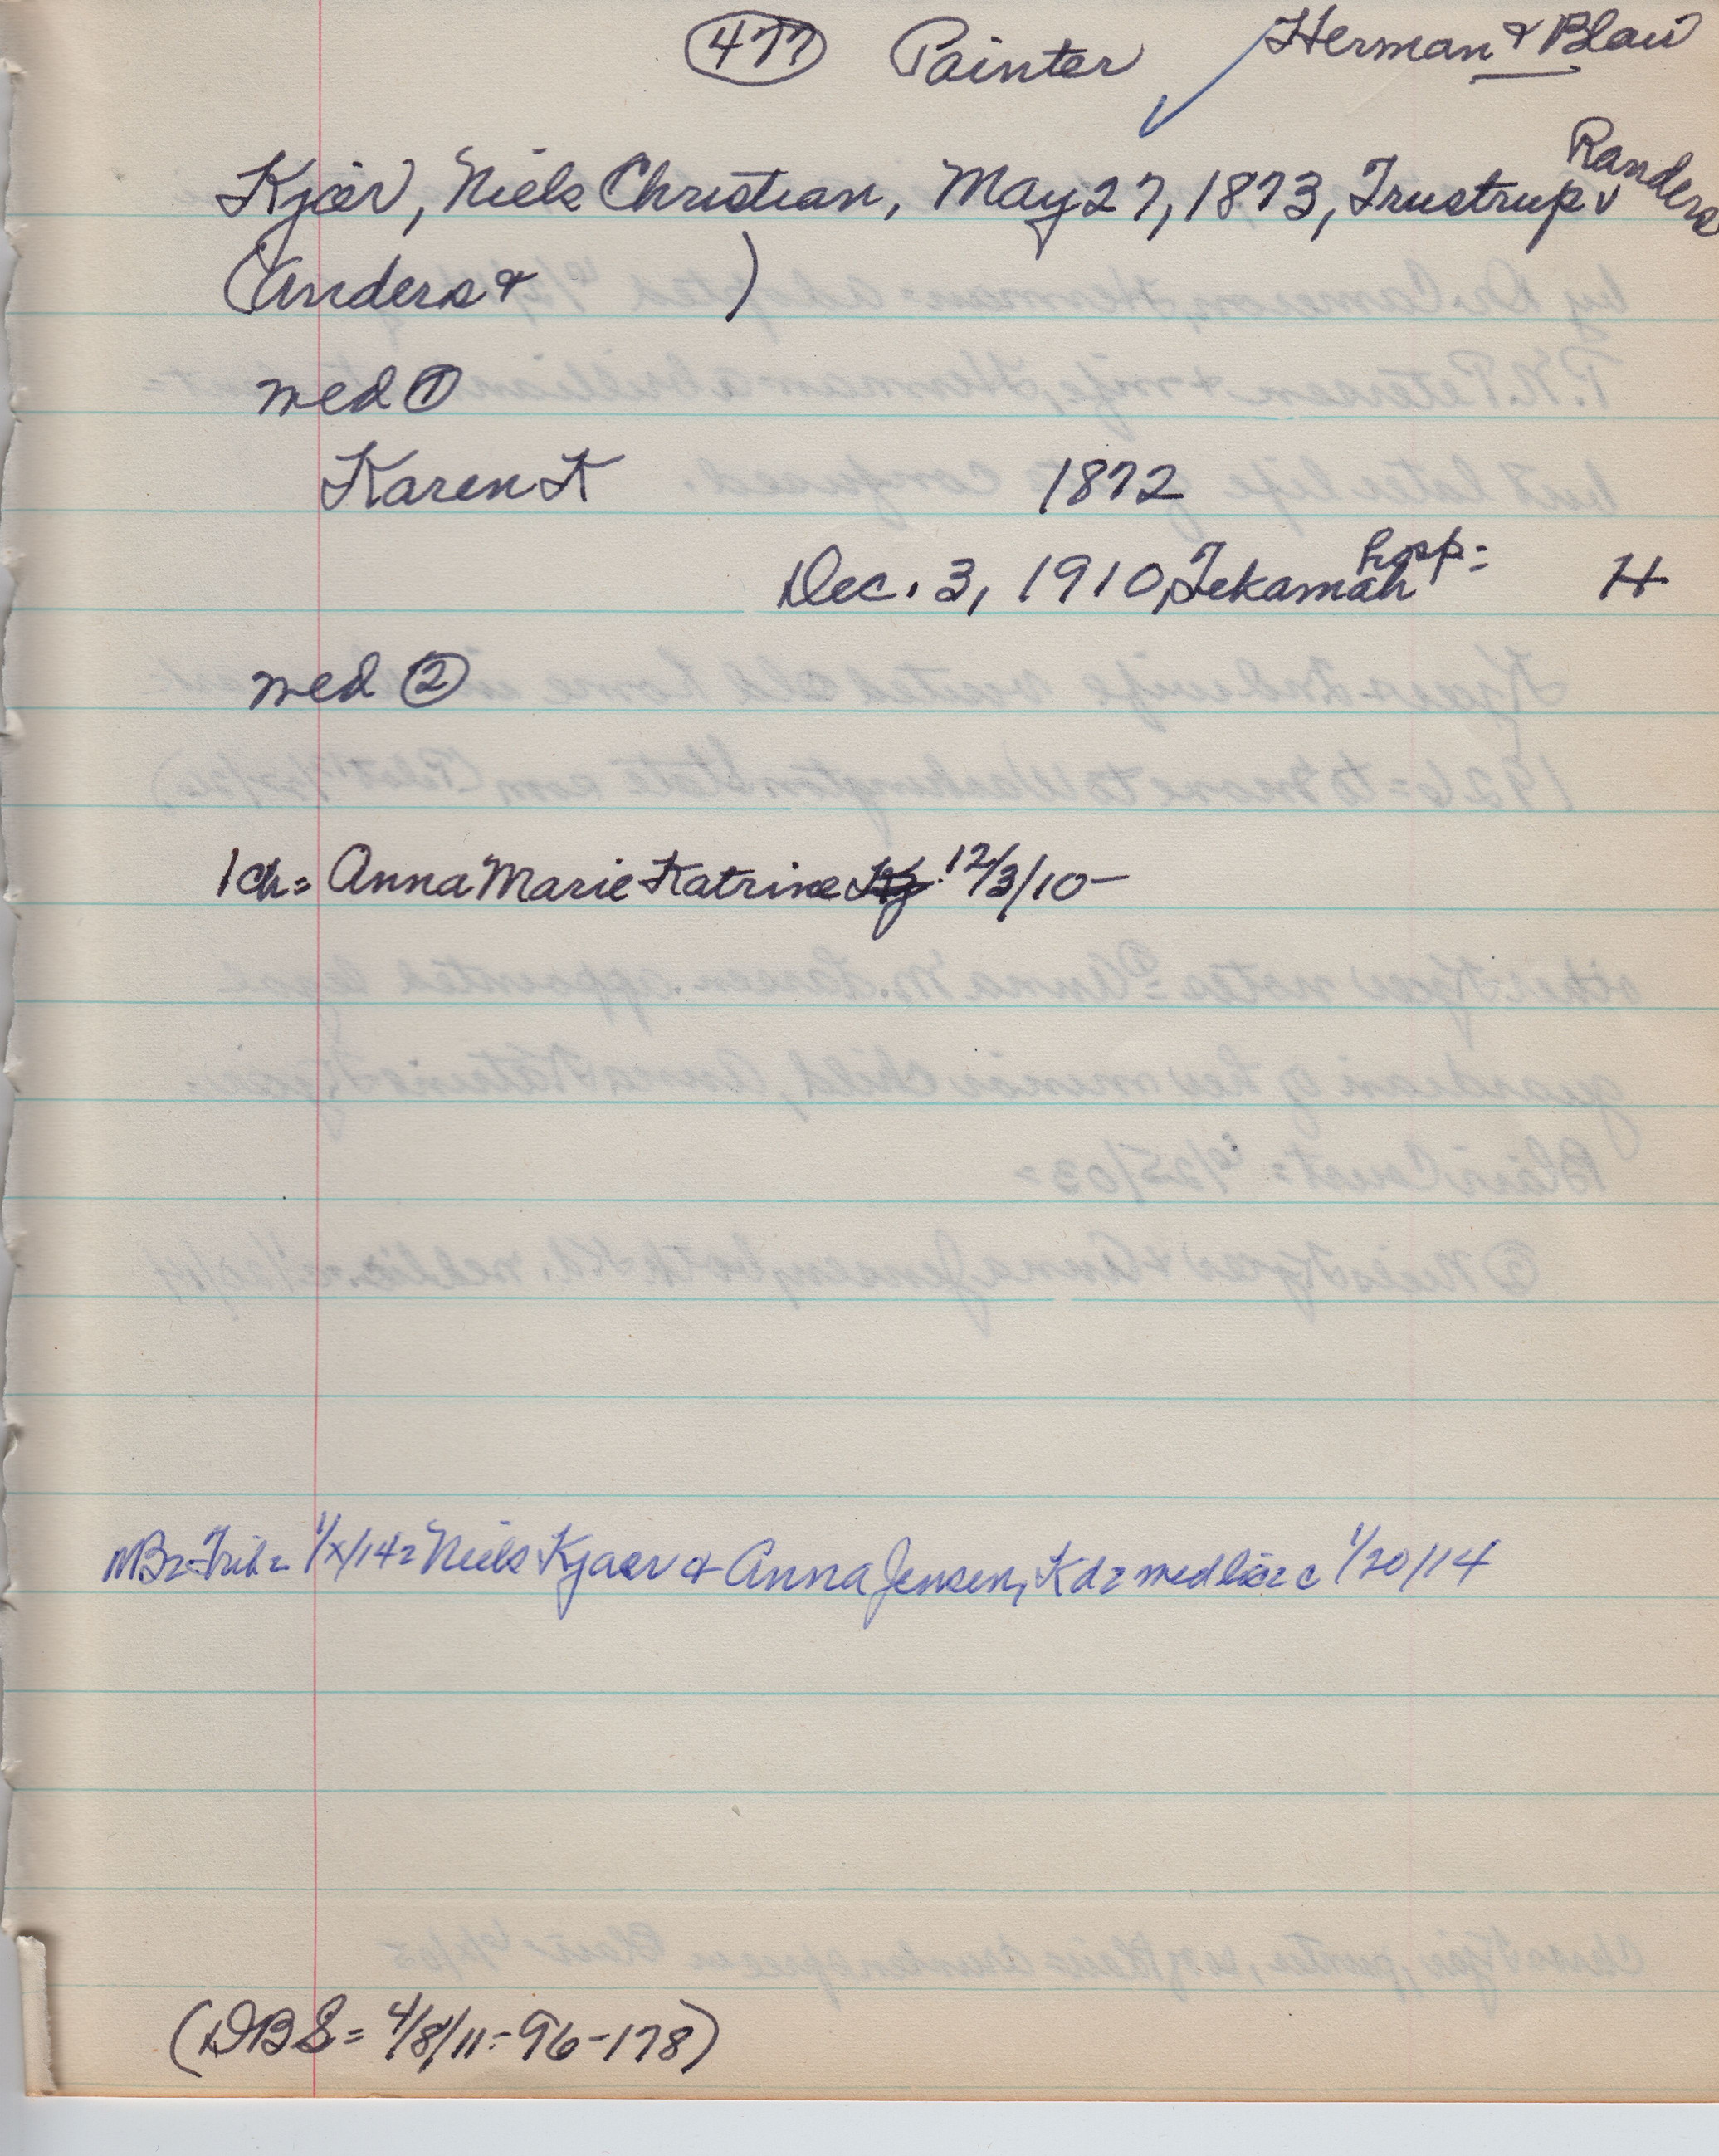 477 Painter Herman & Blair
Randers
Kjær, Niels Christian, May 27, 1873, Trustrup
(Anders & )
med 1
Karen K 1872
hosp =
Dec. 3, 1910, Tekamah H
med 2
1 ch = Anna Marie Katrine Kj. 12/3/10 -
1/x/14 = Niels Kjaer & Anna Jensen, Kd = med lic = c 1/20/14
(DBS = 4/8/11 = 96-178)